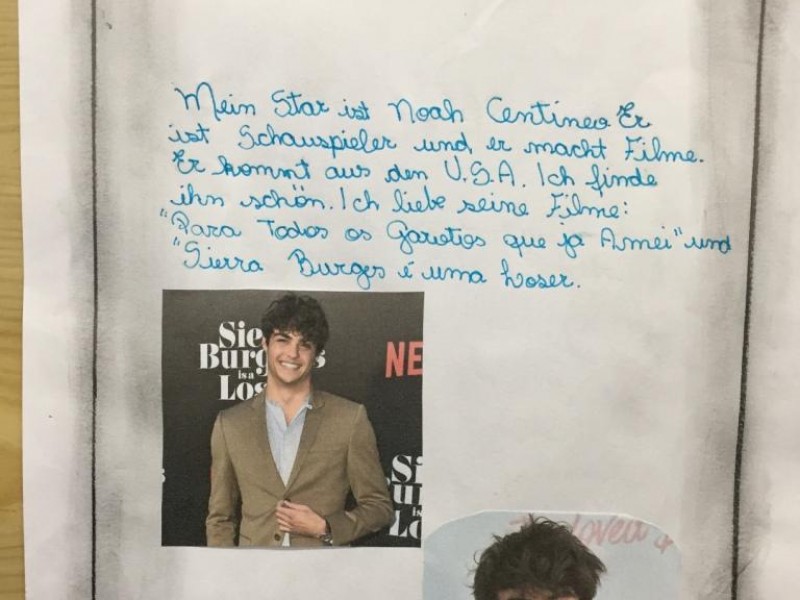 Mein Star ist Noah Centineo Er
ist Schauspieler und er macht Filme.
Er kommt aus den U.S.A. Ich finde
ihn schön. Ich liebe seine Filme:
"Para Todos os Garotos que já Amei" und
"Sierra Burges é uma Loser.
Sie
Burg s
is a
Los
NE
Si
ur
is
Lo
Loved